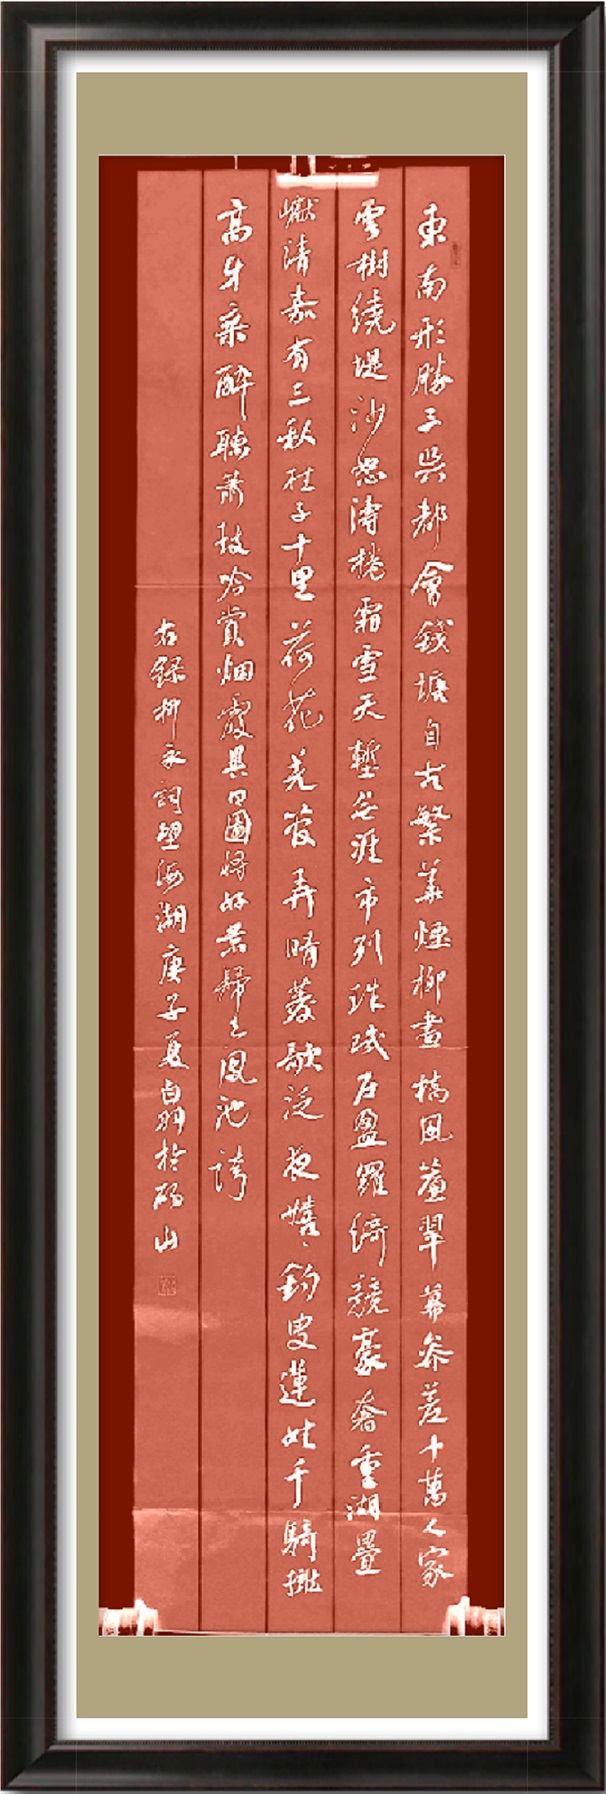 東南形勝三吳都會錢塘自古繁華煙柳畫橋風簾翠幕參差十萬人家
雲樹繞堤沙怒濤捲霜雪天塹無涯市列珠璣戶盈羅綺競豪奢重湖疊
巘清嘉有三秋桂子十里荷花羌管弄晴菱歌泛夜嬉々釣叟蓮娃千騎擁
高牙乘醉聽簫鼓吟賞烟霞異日圖將好景歸去鳳池誇
右錄柳永詞望海潮庚子夏於碭山